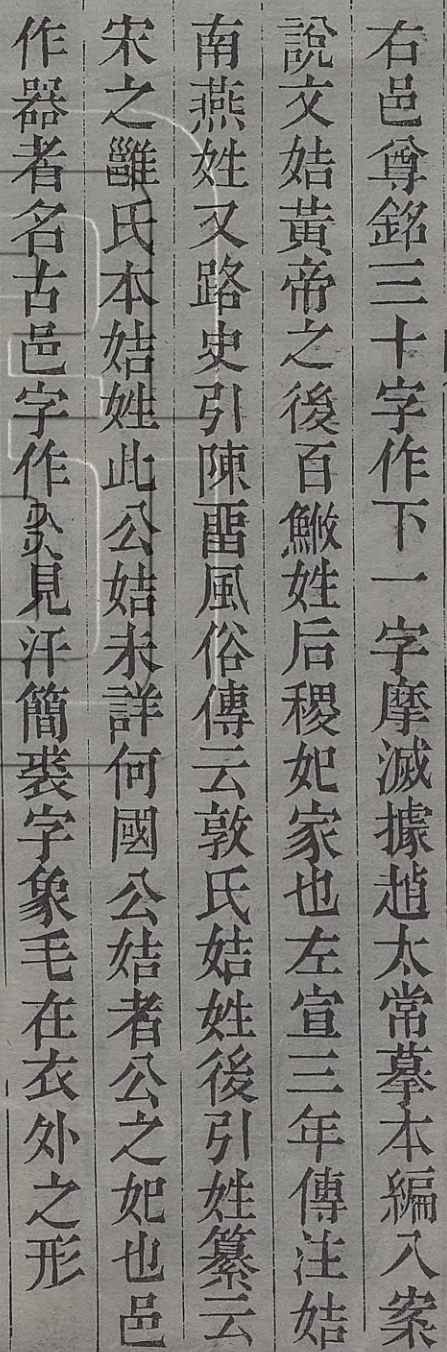 右邑尊銘三十字作下一字摩滅據趙太常摹本編入案
說文姞黃帝之後百鮌姓后稷妃家也左宣三年傳注姞
南燕姓又路史引陳畱風俗傳云敦氏姞姓後引姓纂云
宋之雝氏本姞姓此公姞未詳何國公姞者公之妃也邑
作器者名古邑字作見汗簡裘字象毛在衣外之形